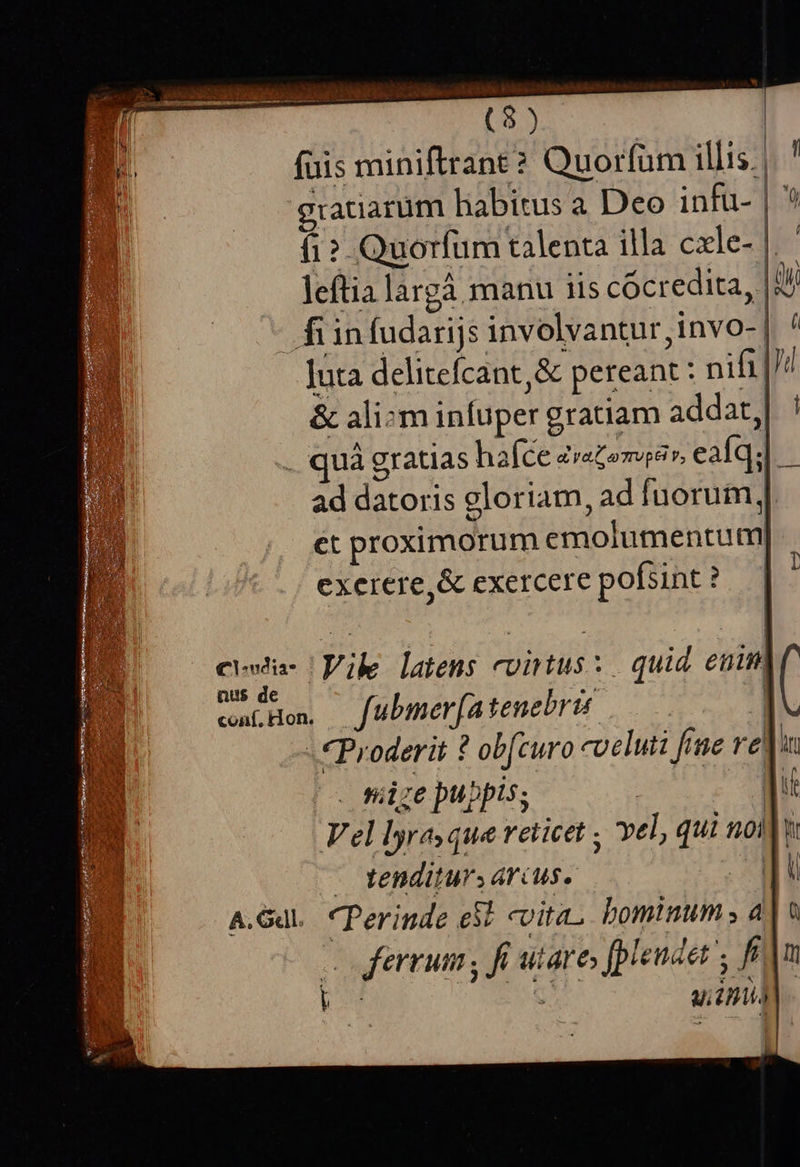 (8)
ſuis miniſtrant? Quorſum illis
gratiarum habitus a Deo infu-
ſi? Quorſum talenta illa cæle-
leſtia largâ manu iis cõcredita,
ſi in ſudarijs involvantur, invo-
luta deliteſcant, & pereant: niſi
& aliam inſuper gratiam addat,
quâ gratias haſce ἀναζωπυρᾶν, eaſq;
ad datoris gloriam, ad ſuorum,
et proximorum emolumentum
exerere, & exercere poſsint?
Claudia- Vile latens virtus: quid enim
nus de
conſ. Hon. ſubmerſa tenebris
Proderit? obſcuro veluti ſine re
mige puppis;
Vel lyra, quæ reticet, vel, qui non
tenditur, arcus.
A. Gell. Perinde eſt vita hominum, ac
ferrum, ſi utare, ſplendet, ſi